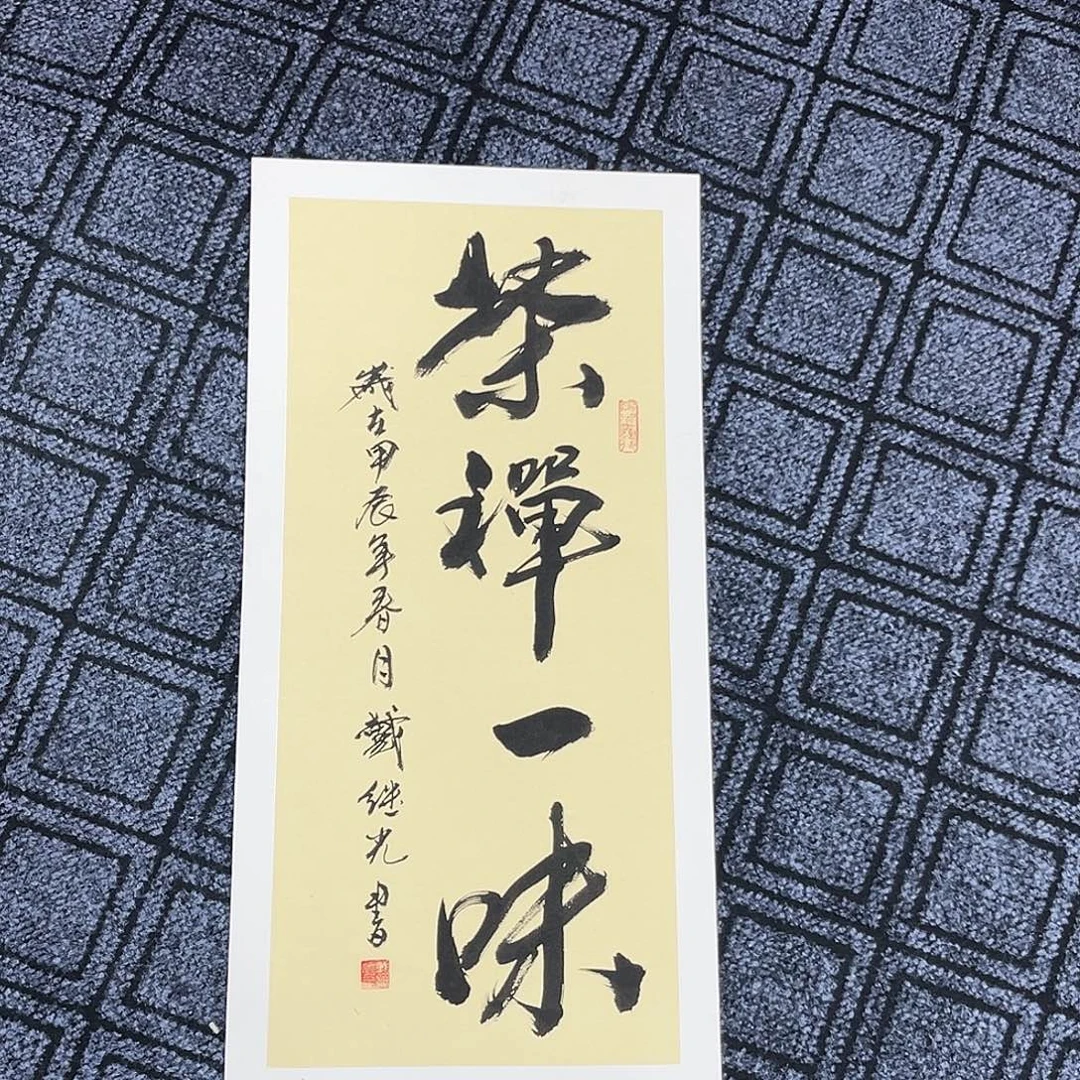 茶禪一味
歲在甲辰年春月戴继光書